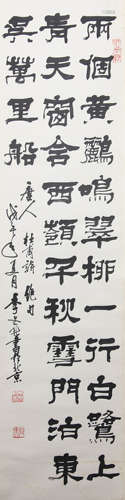 兩個黃鸝鳴翠柳一行白鷺上
青天窗含西嶺千秋雪門泊東
吳萬里船
唐人杜甫詩絕句